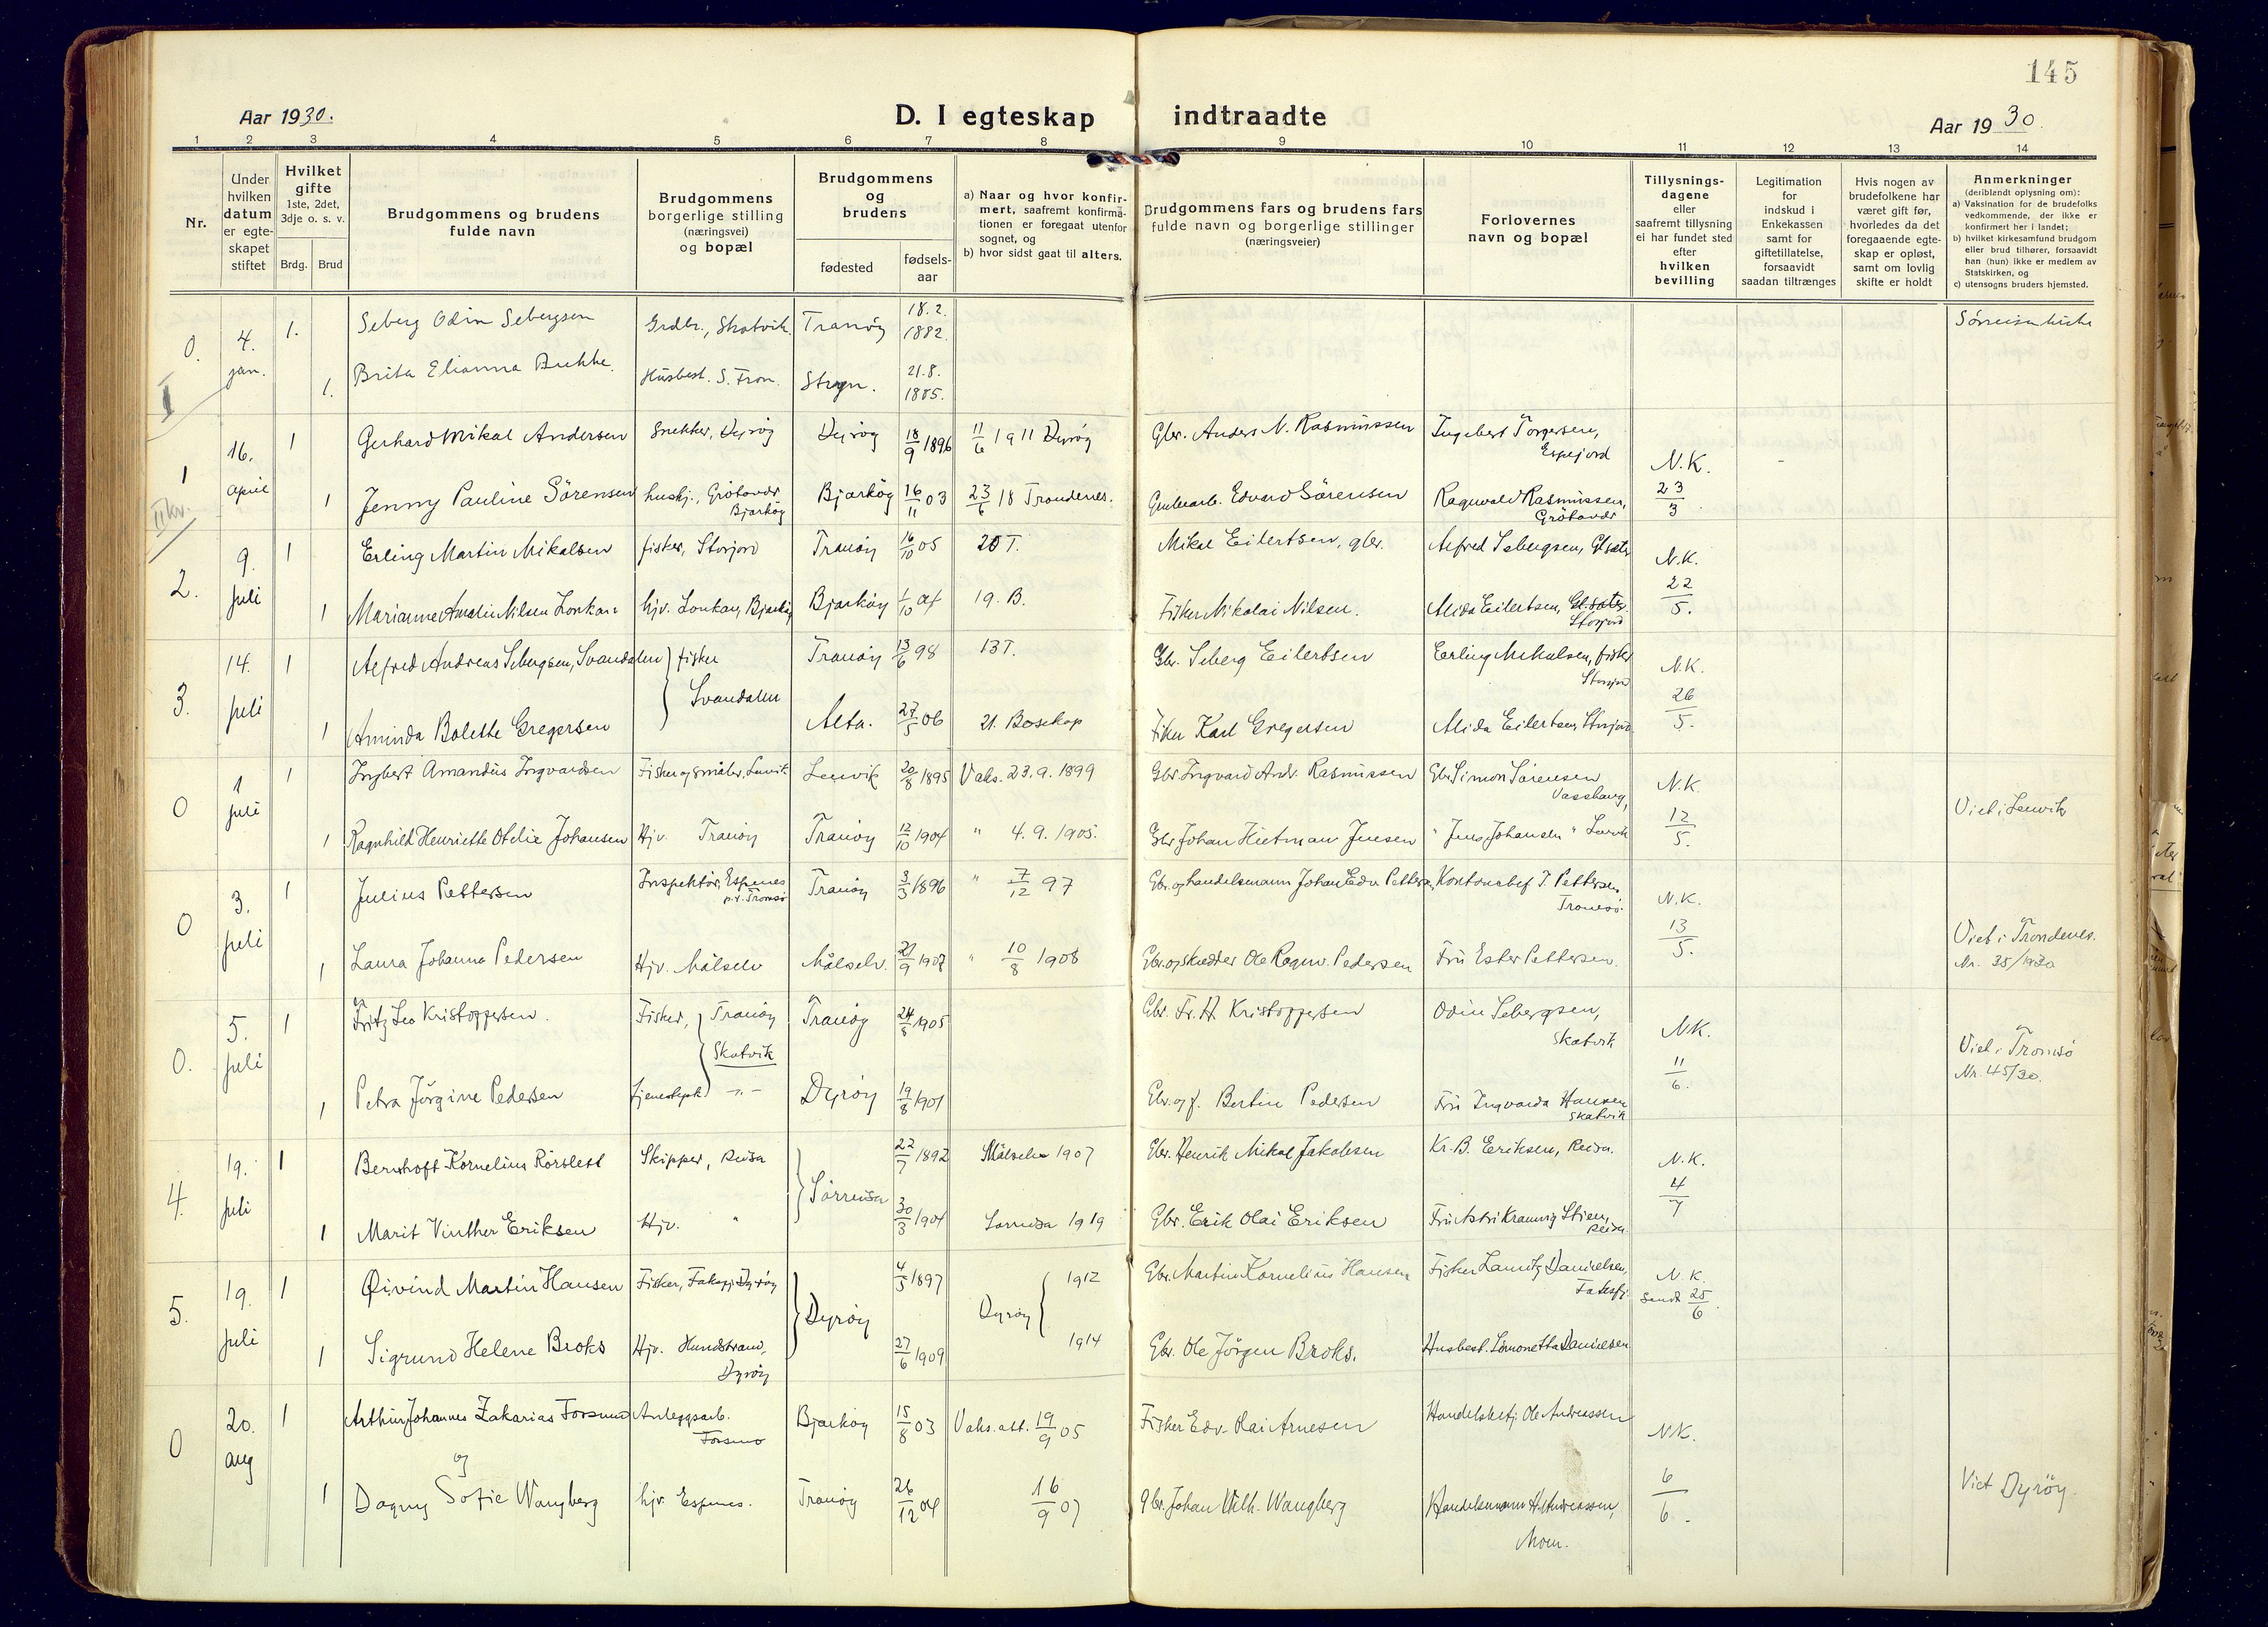 145
Aar 1930.
D. I egteskap indtraadte
Aar 1930.
1 2 3 4 5 6 7 8 9 10 11 12 13 14
Nr.
Under
hvilken
datum
er egte-
skapet
stiftet
Hvilket
gifte
1ste, 2det,
3dje o. s. v.
Brdg. Brud
Brudgommens og brudens
fulde navn
Brudgommens
borgerlige stilling
(næringsvei)
og bopæl
Brudgommens
og
brudens
fødested
fødsels-
aar
a) Naar og hvor konfir-
mert, saafremt konfirma-
tionen er foregaat utenfor
sognet, og
b) hvor sidst gaat til alters.
Brudgommens fars og brudens fars
fulde navn og borgerlige stillinger
(næringsveier)
Forlovernes
navn og bopæl
Tillysnings-
dagene
eller
saafremt tillysning
ei har fundet sted
efter
hvilken
bevilling
Legitimation
for
indskud i
Enkekassen
samt for
giftetillatelse,
forsaavidt
saadan tiltrænges
Hvis nogen av
brudefolkene har
været gift før,
hvorledes da det
foregaaende egte-
skap er opløst,
samt om lovlig
skifte er holdt
Anmerkninger
(deriblandt oplysning om):
a) Vaksination for de brudefolks
vedkommende, der ikke er
konfirmert her i landet;
b) hvilket kirkesamfund brudgom
eller brud tilhører, forsaavidt
han (hun) ikke er medlem av
Statskirken, og
c) utensogns bruders hjemsted.
0. 4. jan. 1. Seberg Odin Sebergsen Grdbr., Skatvik. Tranöy 18.2. 1882. Sörreisa kirke
1. Brita Elianna Bukke. Husbest. S. Tron. Stryn. 21.8. 1885.
I
1 16. april 1 Gerhard Mikal Andersen Snekker, Dyröy Dyröy 18/9 1896 11/6 1911 Dyröy Gbr. Anders N. Rasmussen Ingebert Torgersen, Espejord N.K. 23/3
II kv.
1 Jenny Pauline Sörensen hushj., Grötavær Bjarköy Bjarköy 16/11 03 23/6 18 Trondenes. Grubearb. Edvard Sörensen Ragnvald Rasmussen, Grötavær
2. 9. juli 1 Erling Martin Mikalsen fisker, Storjord Tranöy 16/10 05 20 T. Mikal Eilertsen, gbr. Alfred Sebergsen, N.K. 22/5.
1 Marianne Amalie Nilsen Lonkan hjv. Lonkan, Bjarköy Bjarköy 1/10 04 19. B. Fisker Nikolai Nilsen. Alida Eilertsen, Storjord
3. 14. juli 1 Alfred Andreas Sebergsen, Svandalen fisker Svandalen Tranöy 13/6 98 13 T. Gbr. Seberg Eilertsen Erling Mikalsen, fisker Storjord N.K. 26/5.
1 Aminda Bolette Gregersen Alta. 27/5 06 21. Bosekop Fisker Karl Gregersen Alida Eilertsen, Storjord
0 1 juli 1 Ingbert Amandus Ingvardsen Fisker og småbr., Lenvik Lenvik 20/8 1895 Vaks. 23.9.1899 Gbr. Ingvard Andr. Rasmussen Gbr. Simon Sörensen Vasshaug, N.K. 12/5. Viet i Lenvik
1 Ragnhild Henriette Otelie Johansen Hjv. Tranöy Tranöy 12/10 1904 " 4.9.1905. Gbr. Johan Hietman Jensen " Jens Johansen " Lenvik
0 3. juli 1 Julius Pettersen Inspektör, Espenes p.t. Tromsö Tranöy 3/3 1896 " 7/12 97 Gbr. og handelsmann Johan Edv. Pettersen, Kontorchef J. Pettersen, Tromsö. N.K. 13/5. Viet i Trondenes. Nr. 35/1930
1 Laura Johanna Pedersen Hjv. Målselv Målselv. 21/9 1907 " 10/8 1908 Gbr. og skredder Ole Ragnv. Pedersen Fru Ester Pettersen.
0. 5. juli 1 Fritz Leo Kristoffersen. Fisker, Tranöy Skatvik Tranöy 24/8 1905 Gbr. Fr. H. Kristoffersen Odin Sebergsen, Skatvik N.K. 11/6. Viet i Tromsö Nr. 45/30.
1 Petra Jörgine Pedersen tjenestepk. -"- Dyröy 19/8 1901 Gbr. og f. Bertin Pedersen Fru Ingvarda Hansen Skatvik
4. 19. juli 1 Bernhoft Kornelius Rörslett Skipper, Reisa Sörreisa 22/7 1892 Målselv 1907 Gbr. Henrik Mikal Jakobsen Kr. B. Eriksen, Reisa. N.K. 4/7
1 Marit Vinther Eriksen Hjv. " 30/3 1904 Sörreisa 1919 Gbr. Erik Olai Eriksen Fru Astri Kramvig Stien, Reisa.
5. 19. juli 1 Øivind Martin Hansen Fisker, Faksfj. Dyröy Dyröy 4/5 1897 Dyröy 1912 Gbr. Martin Kornelius Hansen Fisker Lauritz Danielsen, Faksfj. N.K. Sendt 25/6.
1 Sigrund Helene Broks Hjv. Hundstrand, Dyröy 27/6 1909 1914 Gbr. Ole Jörgen Broks. Husbest. Simonetta Danielsen
0 20. aug 1 Arthur Johannes Zakarias Forsmo Anleggsarb. Forsmo Bjarköy 15/8 03 Vaks. att. 19/9 05 Fisker Edv. Olai Arnesen Handelsbetj. Ole Andreassen N.K. 6/6. Viet Dyröy.
og
1 Dagny Sofie Wangberg hjv. Espenes. Tranöy 26/12 04 16/9 07 gbr. Johan Vilh. Wangberg Handelsmann H. Andreassen, Moen.